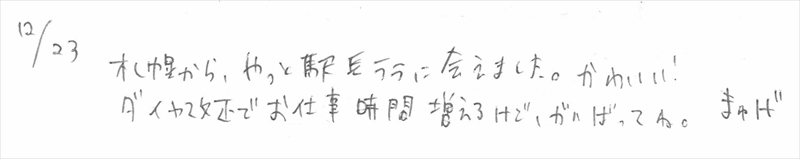 12/23
札幌から、やっと駅長ララに会えました。かわいい!
ダイヤ改正でお仕事時間増えるけど、がんばってね。 まゆげ